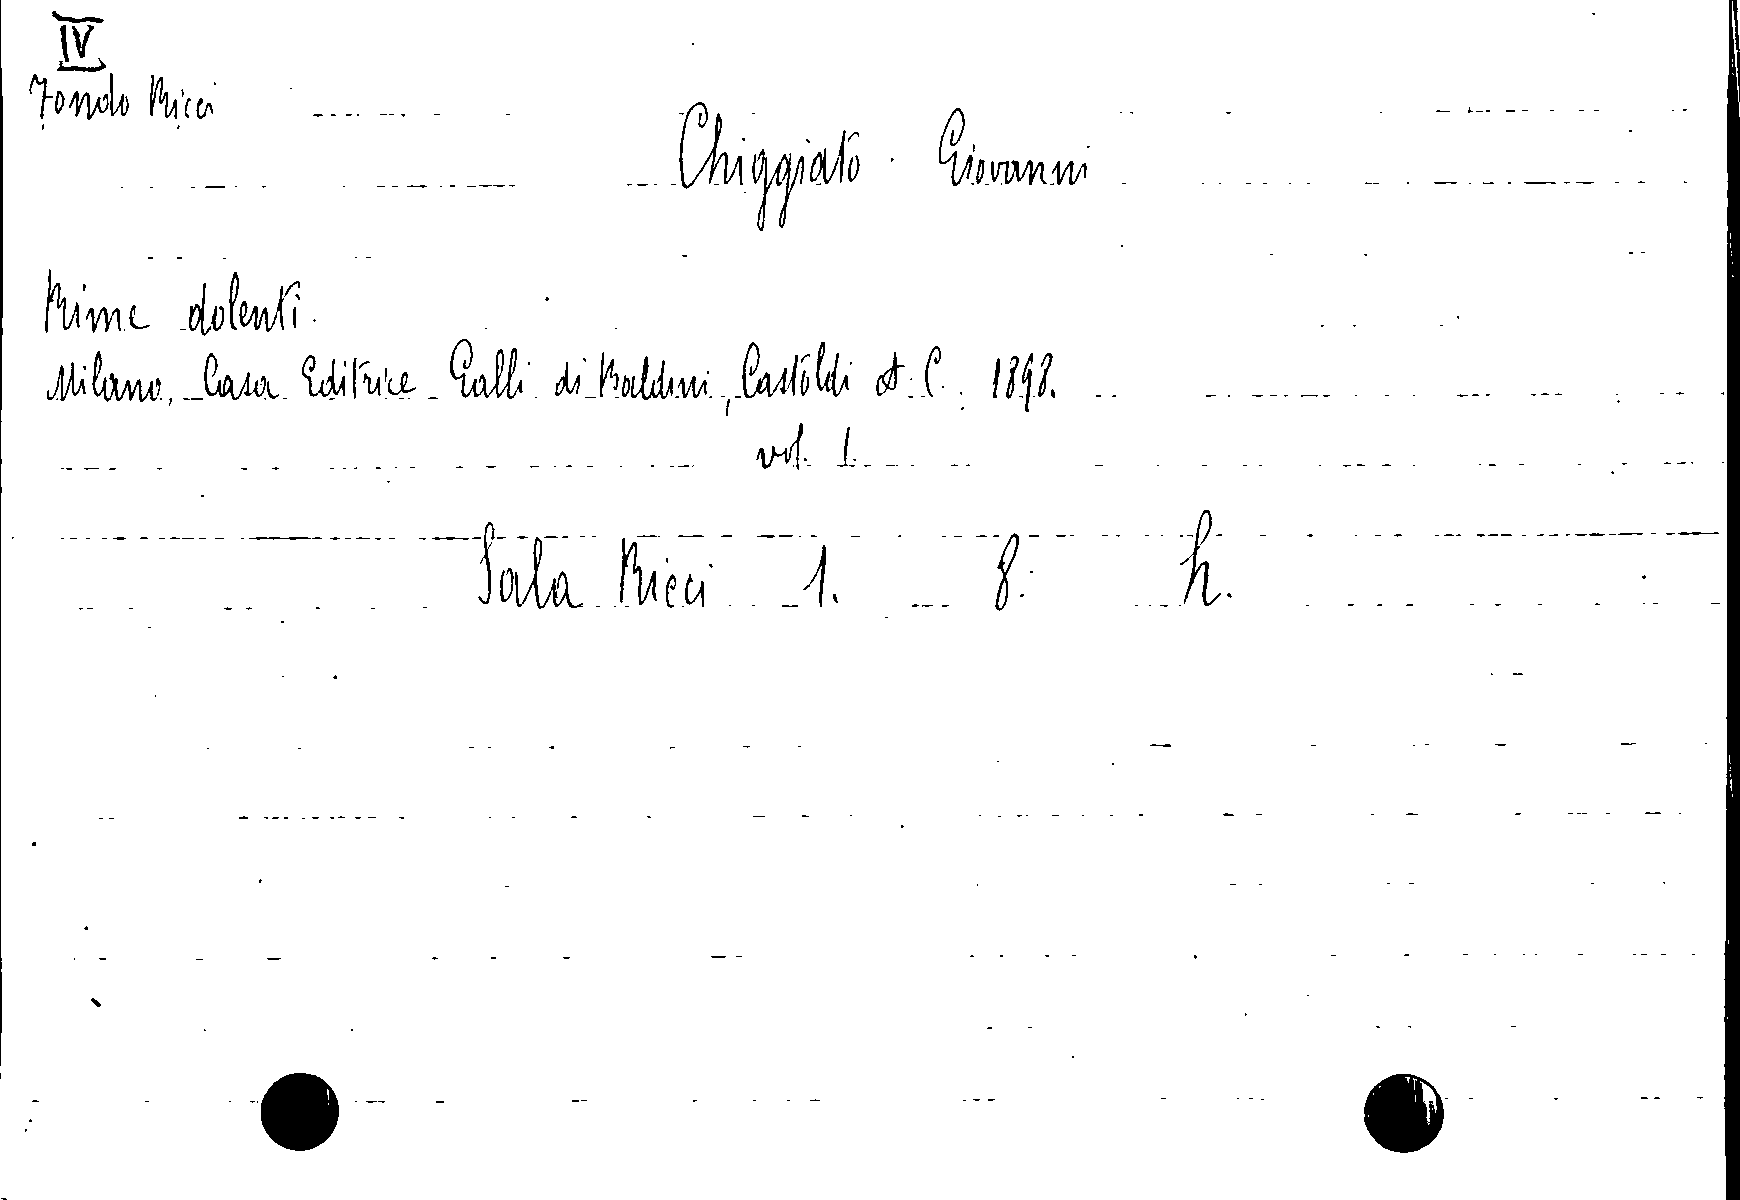 IV
Fondo Ricci
Chiggiato Giovanni
Rime dolenti.
Milano, Casa Editrice Galli di Baldini, Castoldi & C. 1898.
vol. 1
Sala Ricci 1. 8. h.